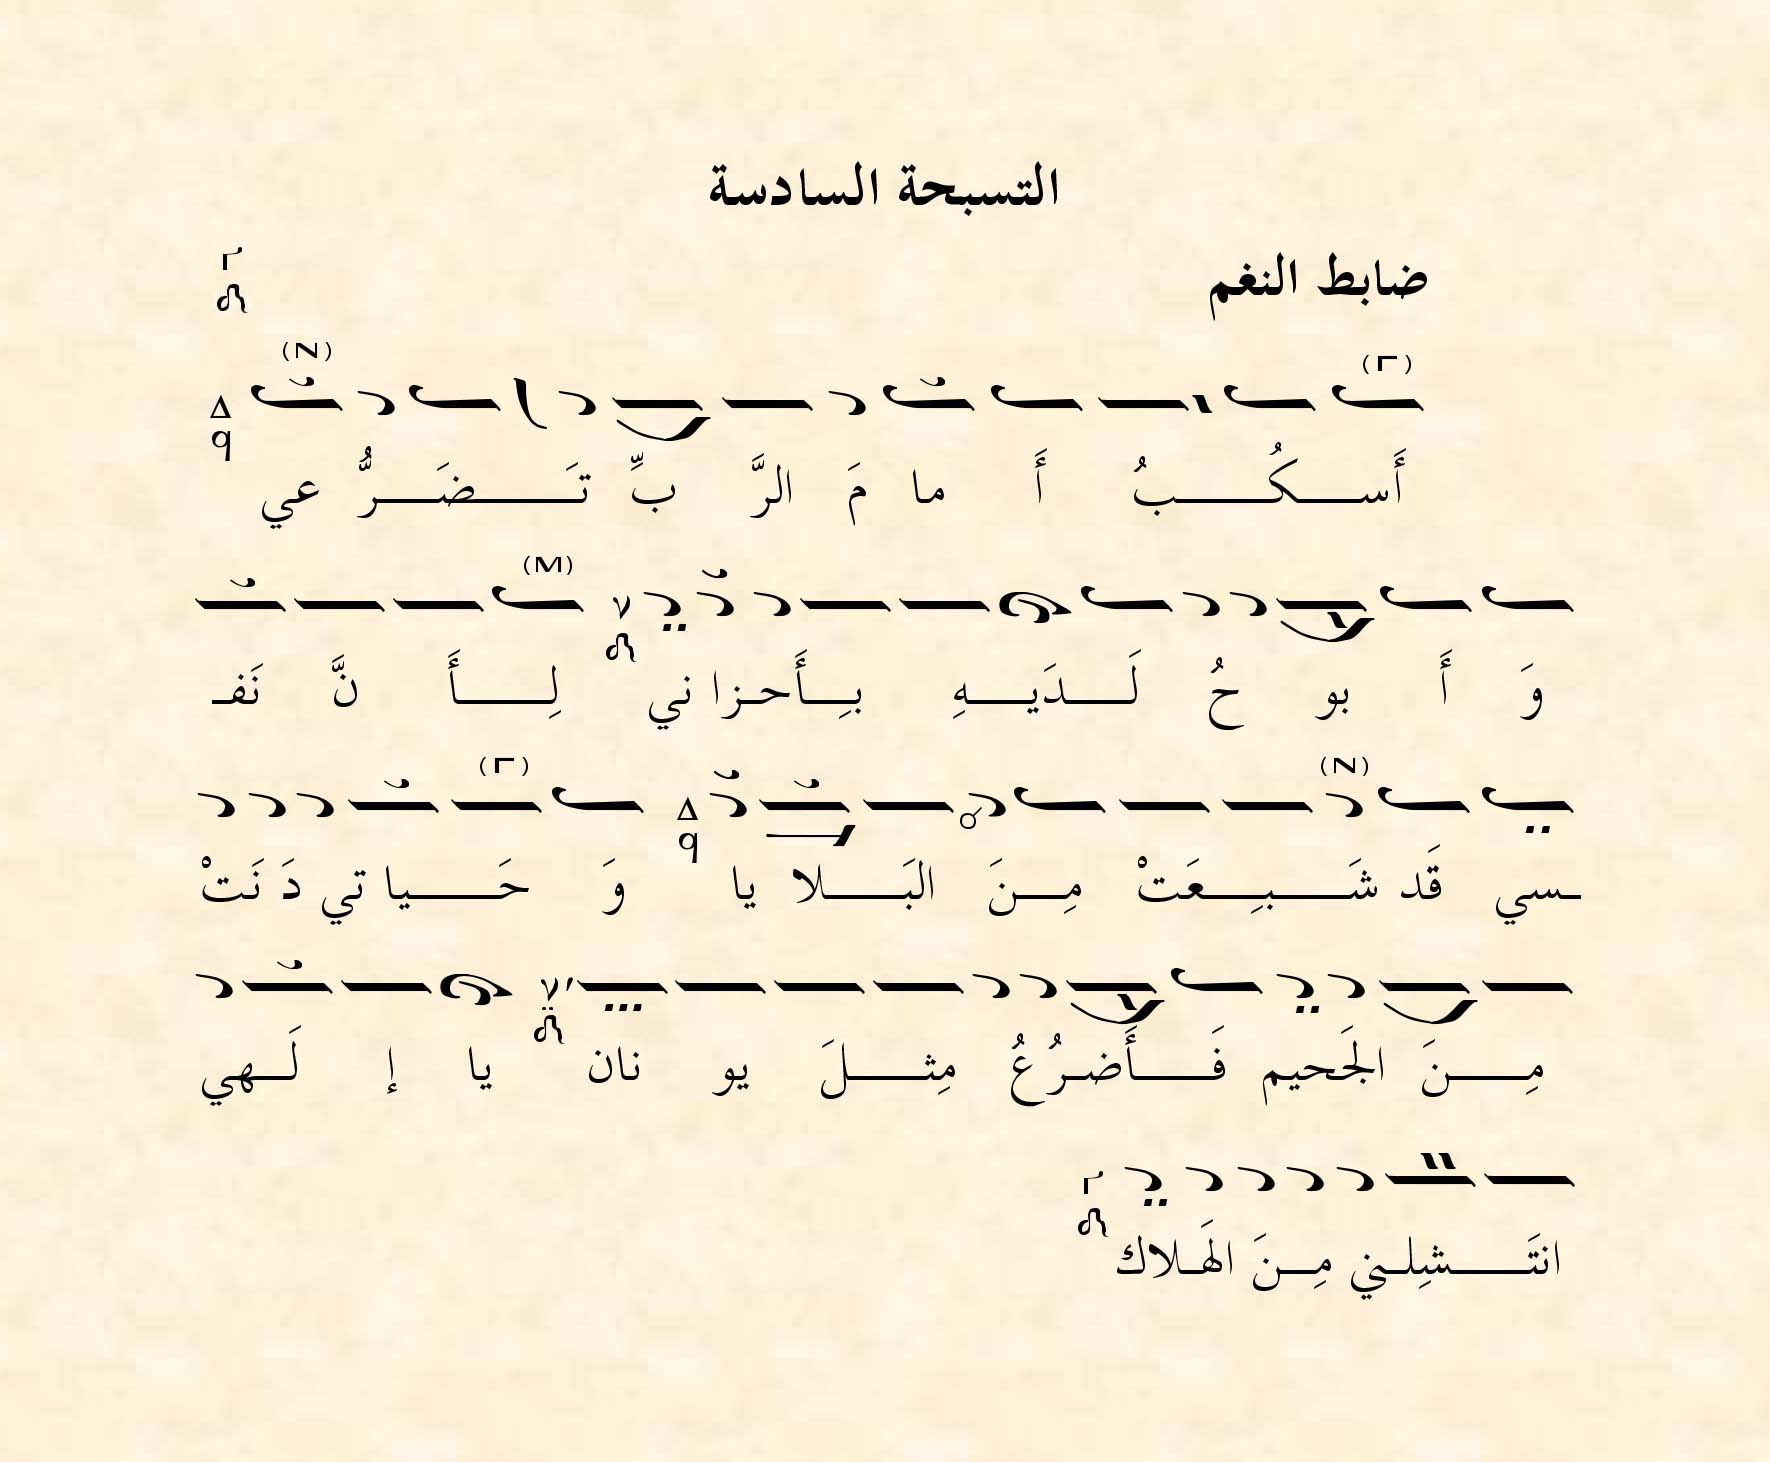 التسبحة السادسة
ضابط النغم
أَســكُــــبُ أَ ما مَ الرَّ بِّ تَـــضَــرُّ عي
وَ أَ بو حُ لَــدَيــهِ بِــأَحـزا ني لِــــأَ نَّ نَفـ
ـسي قَد شَـــبِــعَتْ مِــنَ البَـــلا يا وَ حَــــيا تي دَ نَتْ
مِـــنَ الجَحيم فَـــأَضرُعُ مِثــــلَ يو نان يا إ لَــهي
انتَــــشِلـني مِــنَ الهَـلاك